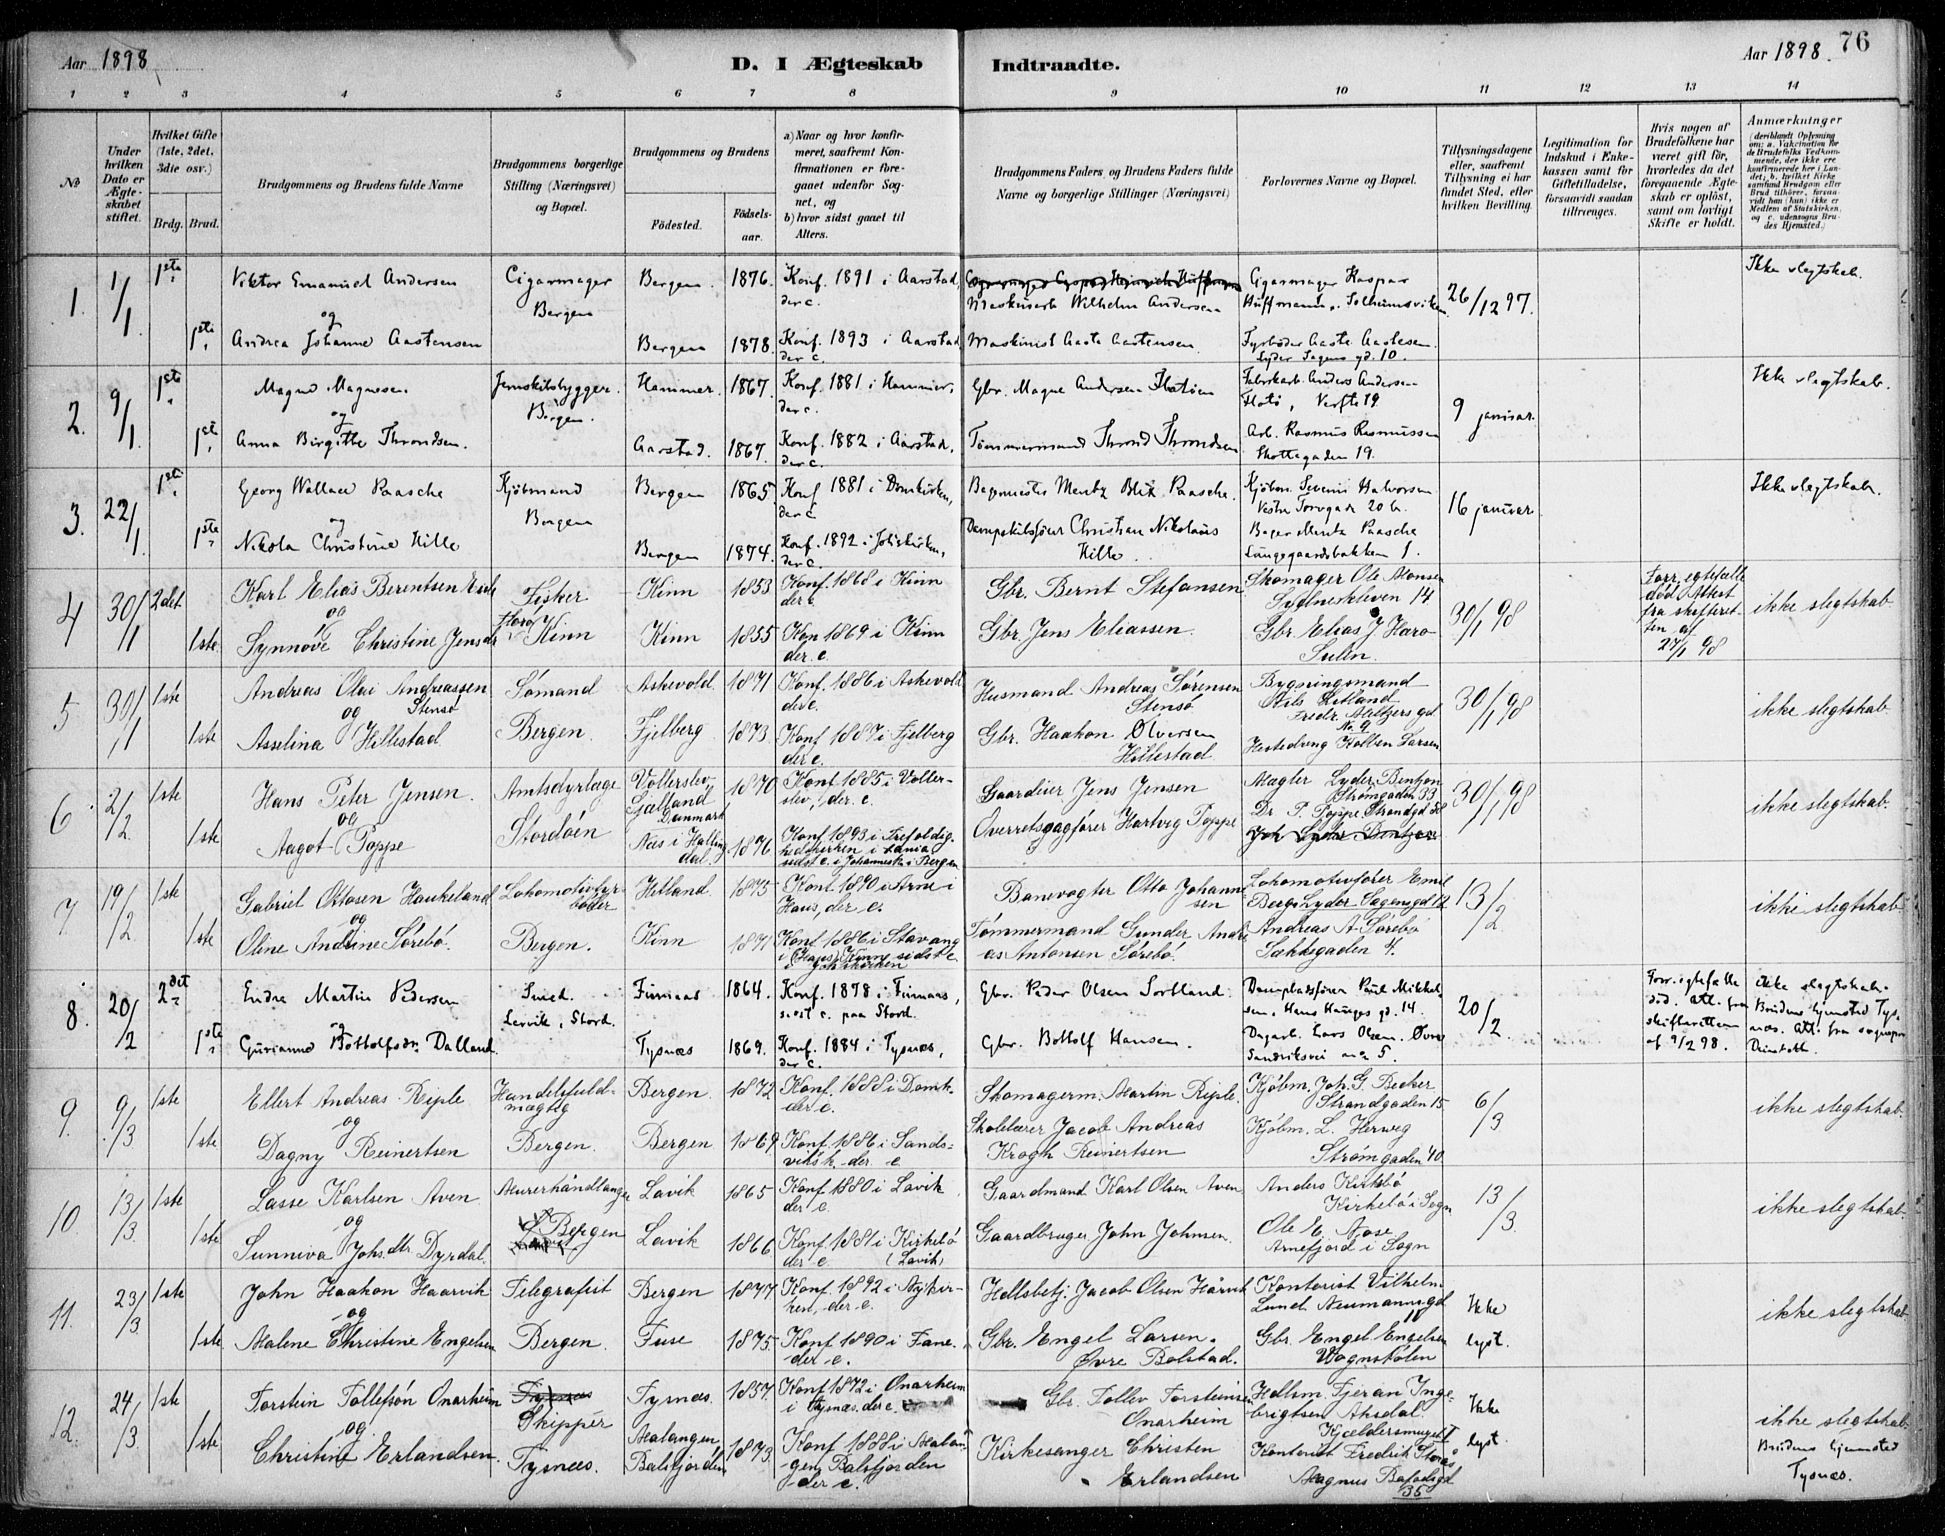 Aar 1898
D. I Ægteskab Indtraadte.
Aar 1898. 76
1 2 3 4 5 6 7 8 9 10 11 12 13 14
№
Under hvilken Dato er Ægteskabet stiftet.
Hvilket Gifte (1ste, 2det, 3die osv.)
Brdg. Brud.
Brudgommens og Brudens fulde Navne
Brudgommens borgerlige Stilling (Næringsvei) og Bopæl.
Brudgommens og Brudens
Födested.
Födselsaar.
a) Naar og hvor konfirmeret, saafremt Konfirmationen er foregaaet udenfor Sognet, og
b) hvor sidst gaaet til Alters.
Brudgommens Faders, og Brudens Faders fulde Navne og borgerlige Stillinger (Næringsvei)
Forlovernes Navne og Bopæl.
Tillysningsdagene eller, saafremt Tillysning ei har fundet Sted, efter hvilken Bevilling.
Legitimation for Indskud i Enkekassen samt for Giftetilladelse, forsaavidt saadan tiltrænges.
Hvis nogen af Brudefolkene har været gift för, hvorledes da det foregaaende Ægteskab er oplöst, samt om lovligt Skifte er holdt.
Anmærkninger
(deriblandt Oplysning om: a. Vakcination for de Brudefolks Vedkommende, der ikke ere konfirmerede her i Landet, b. hvilket Kirkesamfund Brudgom eller Brud tilhörer, forsaavidt han (hun) ikke er Medlem af Statskirken, og c. udensogns Brudes Hjemsted.)
1. 1/1. 1ste Viktor Emanuel Andersen Cigarmager Bergen Bergen 1876. Konf. 1891 i Aarstad, der c. Maskinarb Wilhelm Andersen Cigarmager Kaspar Huffmann, Solheimsviken 26/12 97. Ikke slegtskab.
og
1ste Andrea Johanne Aastensen Bergen 1878. Konf. 1893 i Aarstad der c. Maskinist Aaste Aastensen Fyrböder Aaste Aastesen Lyder Sagens gd. 10.
2. 9/1. 1ste Magne Magnesen Jernskibsbygger. Bergen. Hammer. 1867. Konf. 1881 i Hammer, der c. Gbr. Magne Andersen Flatöen Fabrikarb. Anders Andersen Flatö, Verftet 19 9 januar. Ikke slegtskab.
og
1ste Anna Birgitte Throndsen. Aarstad. 1867. Konf. 1882 i Aarstad, der c. Tömmermand Thrond Throndsen Arb. Rasmus Rasmussen Skottegaden 19.
3. 22/1. 1ste Georg Wallace Paasche Kjöbmand Bergen Bergen 1865 Konf 1881 i Domkirken, der c. Bagermester Mentz Blix Paasche. Kjöbm. Severin Halvorsen Vestre Torvgade 20 b. 16 januar Ikke slegtskab.
og
1ste Nikola Christine Hille Bergen 1874. Konf. 1892 i Johskirken, der c. Dampskibsförer Christian Nikolaus Hille. Bager Mentz Paasche Lungegaardsbakken 1.
4 30/1 2det Karl Elias Berentsen Fisker Florö Kinn Kinn 1853 Konf. 1868 i Kinn der c. Gbr. Bernt Stefansen Skomager Ole Monsen Sydneskleven 14 30/1 98 Forr. egtefælle död. Attest fra skifteretten af 27/1 98 ikke slegtskab
og
1ste Synnöve Christine Jensdr Kinn 1855 Kon 1869 i Kinn der. c. Gbr. Jens Eliassen. Gbr Elias J Haro Sulen.
5 30/1 1ste Andreas Olai Andreassen Stensö Sömand Bergen. Askevold. 1871 Konf. 1886 i Askevold der c. Husmand Andreas Sörensen Stensö Bygningsmand Nils Fredr. Meltzers gd No. 9 30/1 98 ikke slegtskab
og
1ste Asselina Hillestad Fjelberg 1873. Konf 1887 i Fjelberg der c. Gbr. Haakon Ölversen Hillestad Larsen
6 2/2 1ste Hans Peter Jensen. Amtsdyrlæge Stordöen Vollerslev Sjælland Danmark 1870 Konf. 1885 i Vollerslev, der. c. Gaardeier Jens Jensen Mægler Lyder Bentzon Strömgaden 33 30/1 98 ikke slegtskab
og
1ste Aagot Poppe Næs i Hallingdal. 1876 Konf. 1893 i Trefoldighedskirken i sidst c. i Johannesk. i Bergen Overretssagförer Hartvig Poppe Dr. P. Poppe Strandgd
7 19/2 1ste Gabriel Ottosen Haukeland Lokomotivfyrböder Bergen. Hetland 1875 Konf. 1890 i Arne i Haus, der c. Banevogter Otto Johannesen Lokomotivförer Emil Berg Lyder Sagensgd 12 13/2 ikke slegtskab
og
1ste Oline Andrine Sörebö. Kinn 1871 Konf 1886 i Stavang i Kinn sidst c. i Johskirken Tömmermand Gunder Andreas Antonsen Sörebö. Andreas A. Sörebö Sækkegaden 4.
8. 20/2 2det Endre Martin Pedersen Smed. Lervik, Stord. Finnaas 1864. Konf. 1878 i Finnaas, sidst c. paa Stord. Gbr. Peder Olsen Sortland. Dampskibsförer Paul Mikkelsen, Hans Hauges gd. 14. 20/2. Forr. egtefælle död. Att. fra skifteretten af 9/2 98. Ikke slegtskab. Brudens hjemsted Tysnæs. Att. fra sognepr
og
1ste Gurianne Bottolfsdr. Dalland. Tysnæs 1869. Konf. 1884 i Tysnæs, der c. Gbr. Bottolf Hansen. Dagarb. Lars Olsen. Övre Sandviksvei 5.
9. 9/3. 1ste Ellert Andreas Riple Handelsfuldmægtig Bergen. Bergen. 1872 Konf. 1888 i Domk. der c. Skomagerm. Martin Riple. Kjöbm. Joh. G. Becker Strandgaden 15 6/3 ikke slegtskab
og
1ste Dagny Reinertsen Bergen 1869 Konf. 1886 i Sandsviksk. der c. Skolelærer Jacob Andreas Krogh Reinertsen Kjöbm. L. Herweg Strömgaden 40
10 13/3. 1ste Lasse Karlsen Aven Murerhåndlanger Bergen Lavik 1865 Konf. 1880 i Lavik der c. Gaardmand Karl Olsen Aven Anders Kirkebö Kirkebö i Sogn 13/3. ikke slegtskab.
og
1ste Sunniva Johs.dtr Dyrdal. Lavik 1866 Konf 1881 i Kirkebö der c. (Lavik) Gaardbruger John Johnsen. Ole E. Nese Arnefjord i Sogn
11. 23/3. 1ste John Haakon Haarvik Telegrafist Bergen. Bergen 1877 Konf. 1892 i Nykirken, der c. Hellsbetj. Jacob Olsen Hårvik Kontorist Vilhelm Lund Neumannsgd 18 Ikke lyst. ikke slegtskab
og
1ste Malene Christine Engelsen Fuse 1875. Konf. 1890 i Fane. der c. Gbr. Engel Larsen. Övre Bolstad. Gbr. Engel Engelsen
12. 24/3. 1ste Torstein Tollefsön Onarheim Skipper Tysnæs. Tysnæs. 1857. Konf. 1872 i Onarheim i Tysnæs. der c. Gbr. Tollev Torsteinsen Onarheim Hellsm. Fjeran Ingebrigtsen Aksdal. Kjeldersmuget Ikke lyst. ikke slegtskab. Brudens hjemsted Tysnæs.
og
1ste Christine Erlandsen. Malangen Balsfjorden 1873. Konf. 1888 i Malangen, Balsfjorden der c. Kirkesanger Christen Erlandsen Kontorist Fredrik Magnus 35